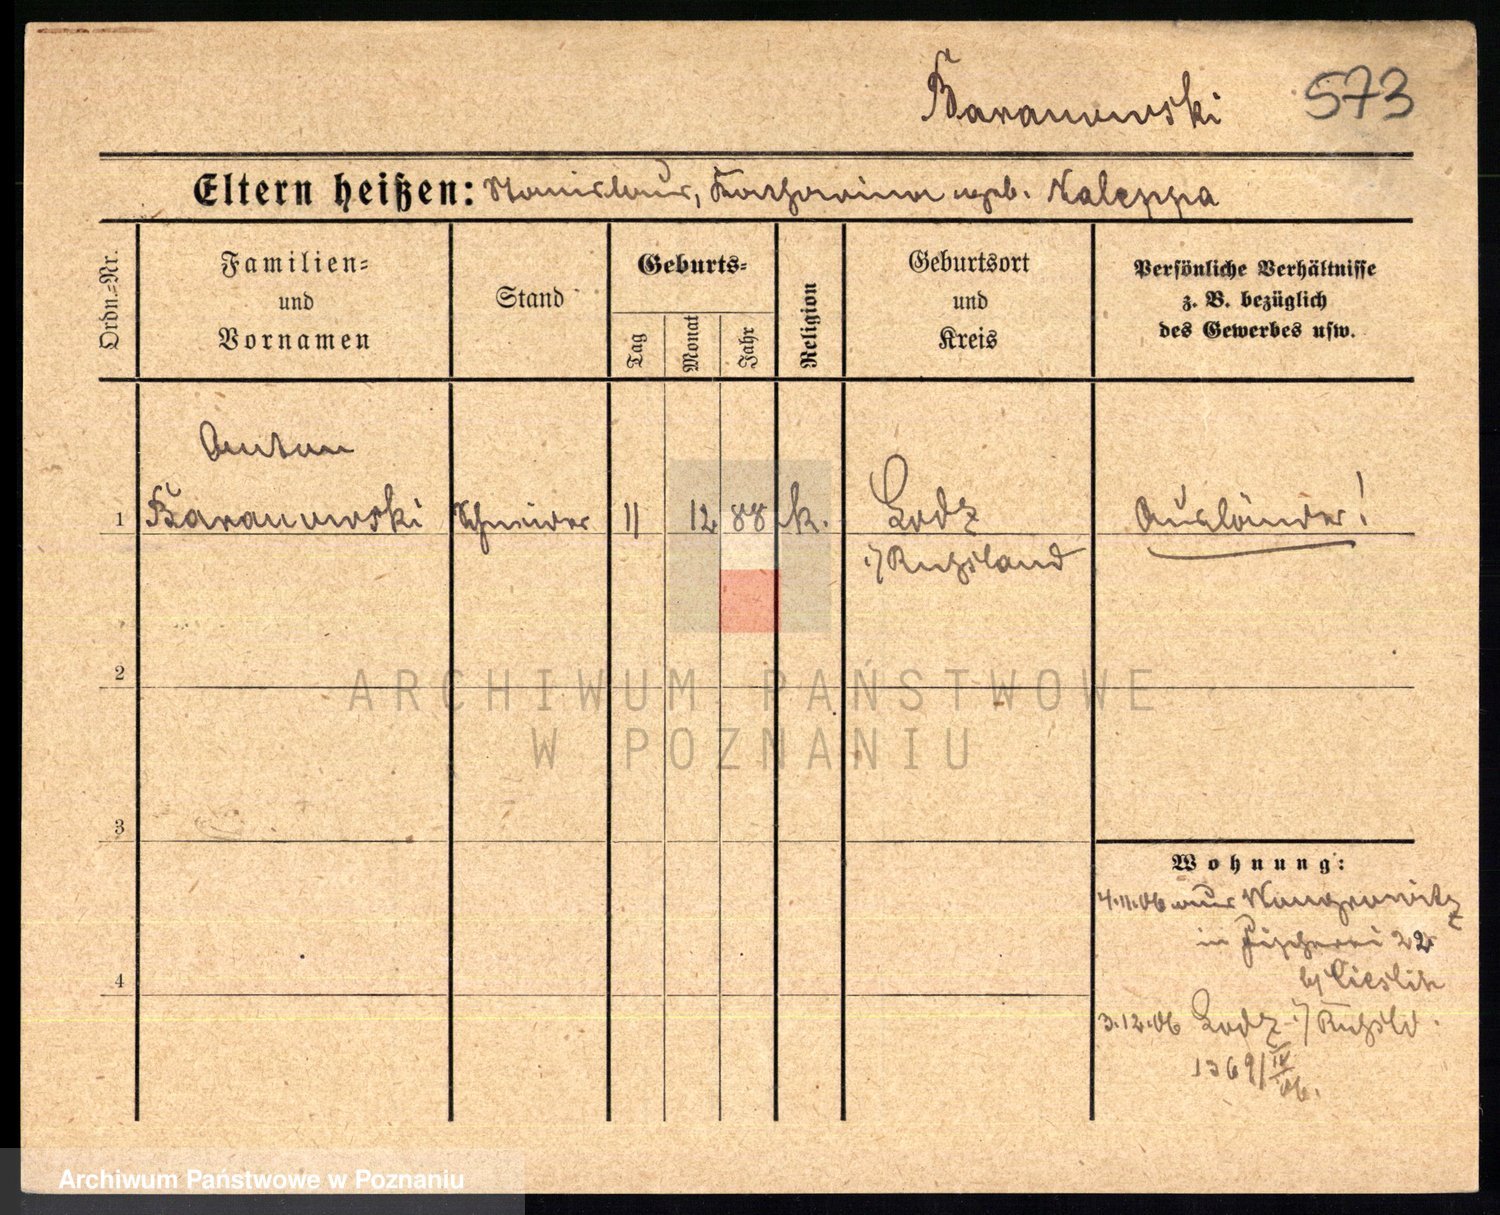 Baranowski 573
Eltern heißen: Stanislaus, Katharina geb. Kaleppa
Ordn.=Nr.
Familien=
und
Vornamen
Stand
Geburts=
Tag
Monat
Jahr
Religion
Geburtsort
und
Kreis
Persönliche Verhältnisse
z. B. bezüglich
des Gewerbes usw.
Anton
1 Baranowski Schneider 11 12 88 k. Lodz Ausländer!
i/ Russland
2
ARCHIWUM PAŃSTWOWE
W POZNANIU
3
Wohnung:
4.11.06 aus Wongrowitz
in Fischerei 22
4
b/ Cieslik
3.12.06 Lodz i/ Russld.
1369/IV
06.
Archiwum Państwowe w Poznaniu